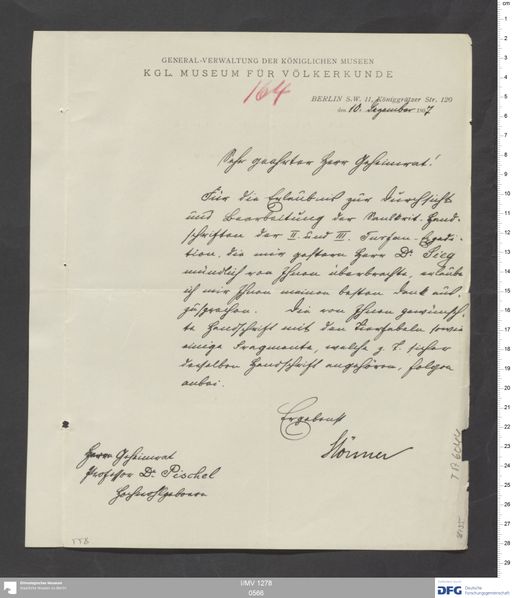 GENERAL-VERWALTUNG DER KÖNIGLICHEN MUSEEN
KGL. MUSEUM FÜR VÖLKERKUNDE
164
BERLIN S.W. 11, Königgrätzer Str. 120
den 10. Dezember 1907
Sehr geehrter Herr Geheimrat!
Für die Erlaubnis zur Durchsicht
und Bearbeitung der Sanskrit-Hand-
schriften der II. und III. Turfan-Expedi-
tion, die mir gestern Herr Dr. Sieg
mündlich von Ihnen überbrachte, erlaube
ich mir Ihnen meinen besten Dank aus-
zusprechen. Die von Ihnen gewünsch-
te Handschrift mit den Tierfabeln sowie
einige Fragmente, welche z. T. sicher
derselben Handschrift angehören, folgen
anbei.
Ergebenst
Stönner
Herrn Geheimrat
Professor Dr. Pischel
Hochwohlgeboren
Ethnologisches Museum
Staatliche Museen zu Berlin
I/MV 1278
0566
DFG Deutsche
Forschungsgemeinschaft